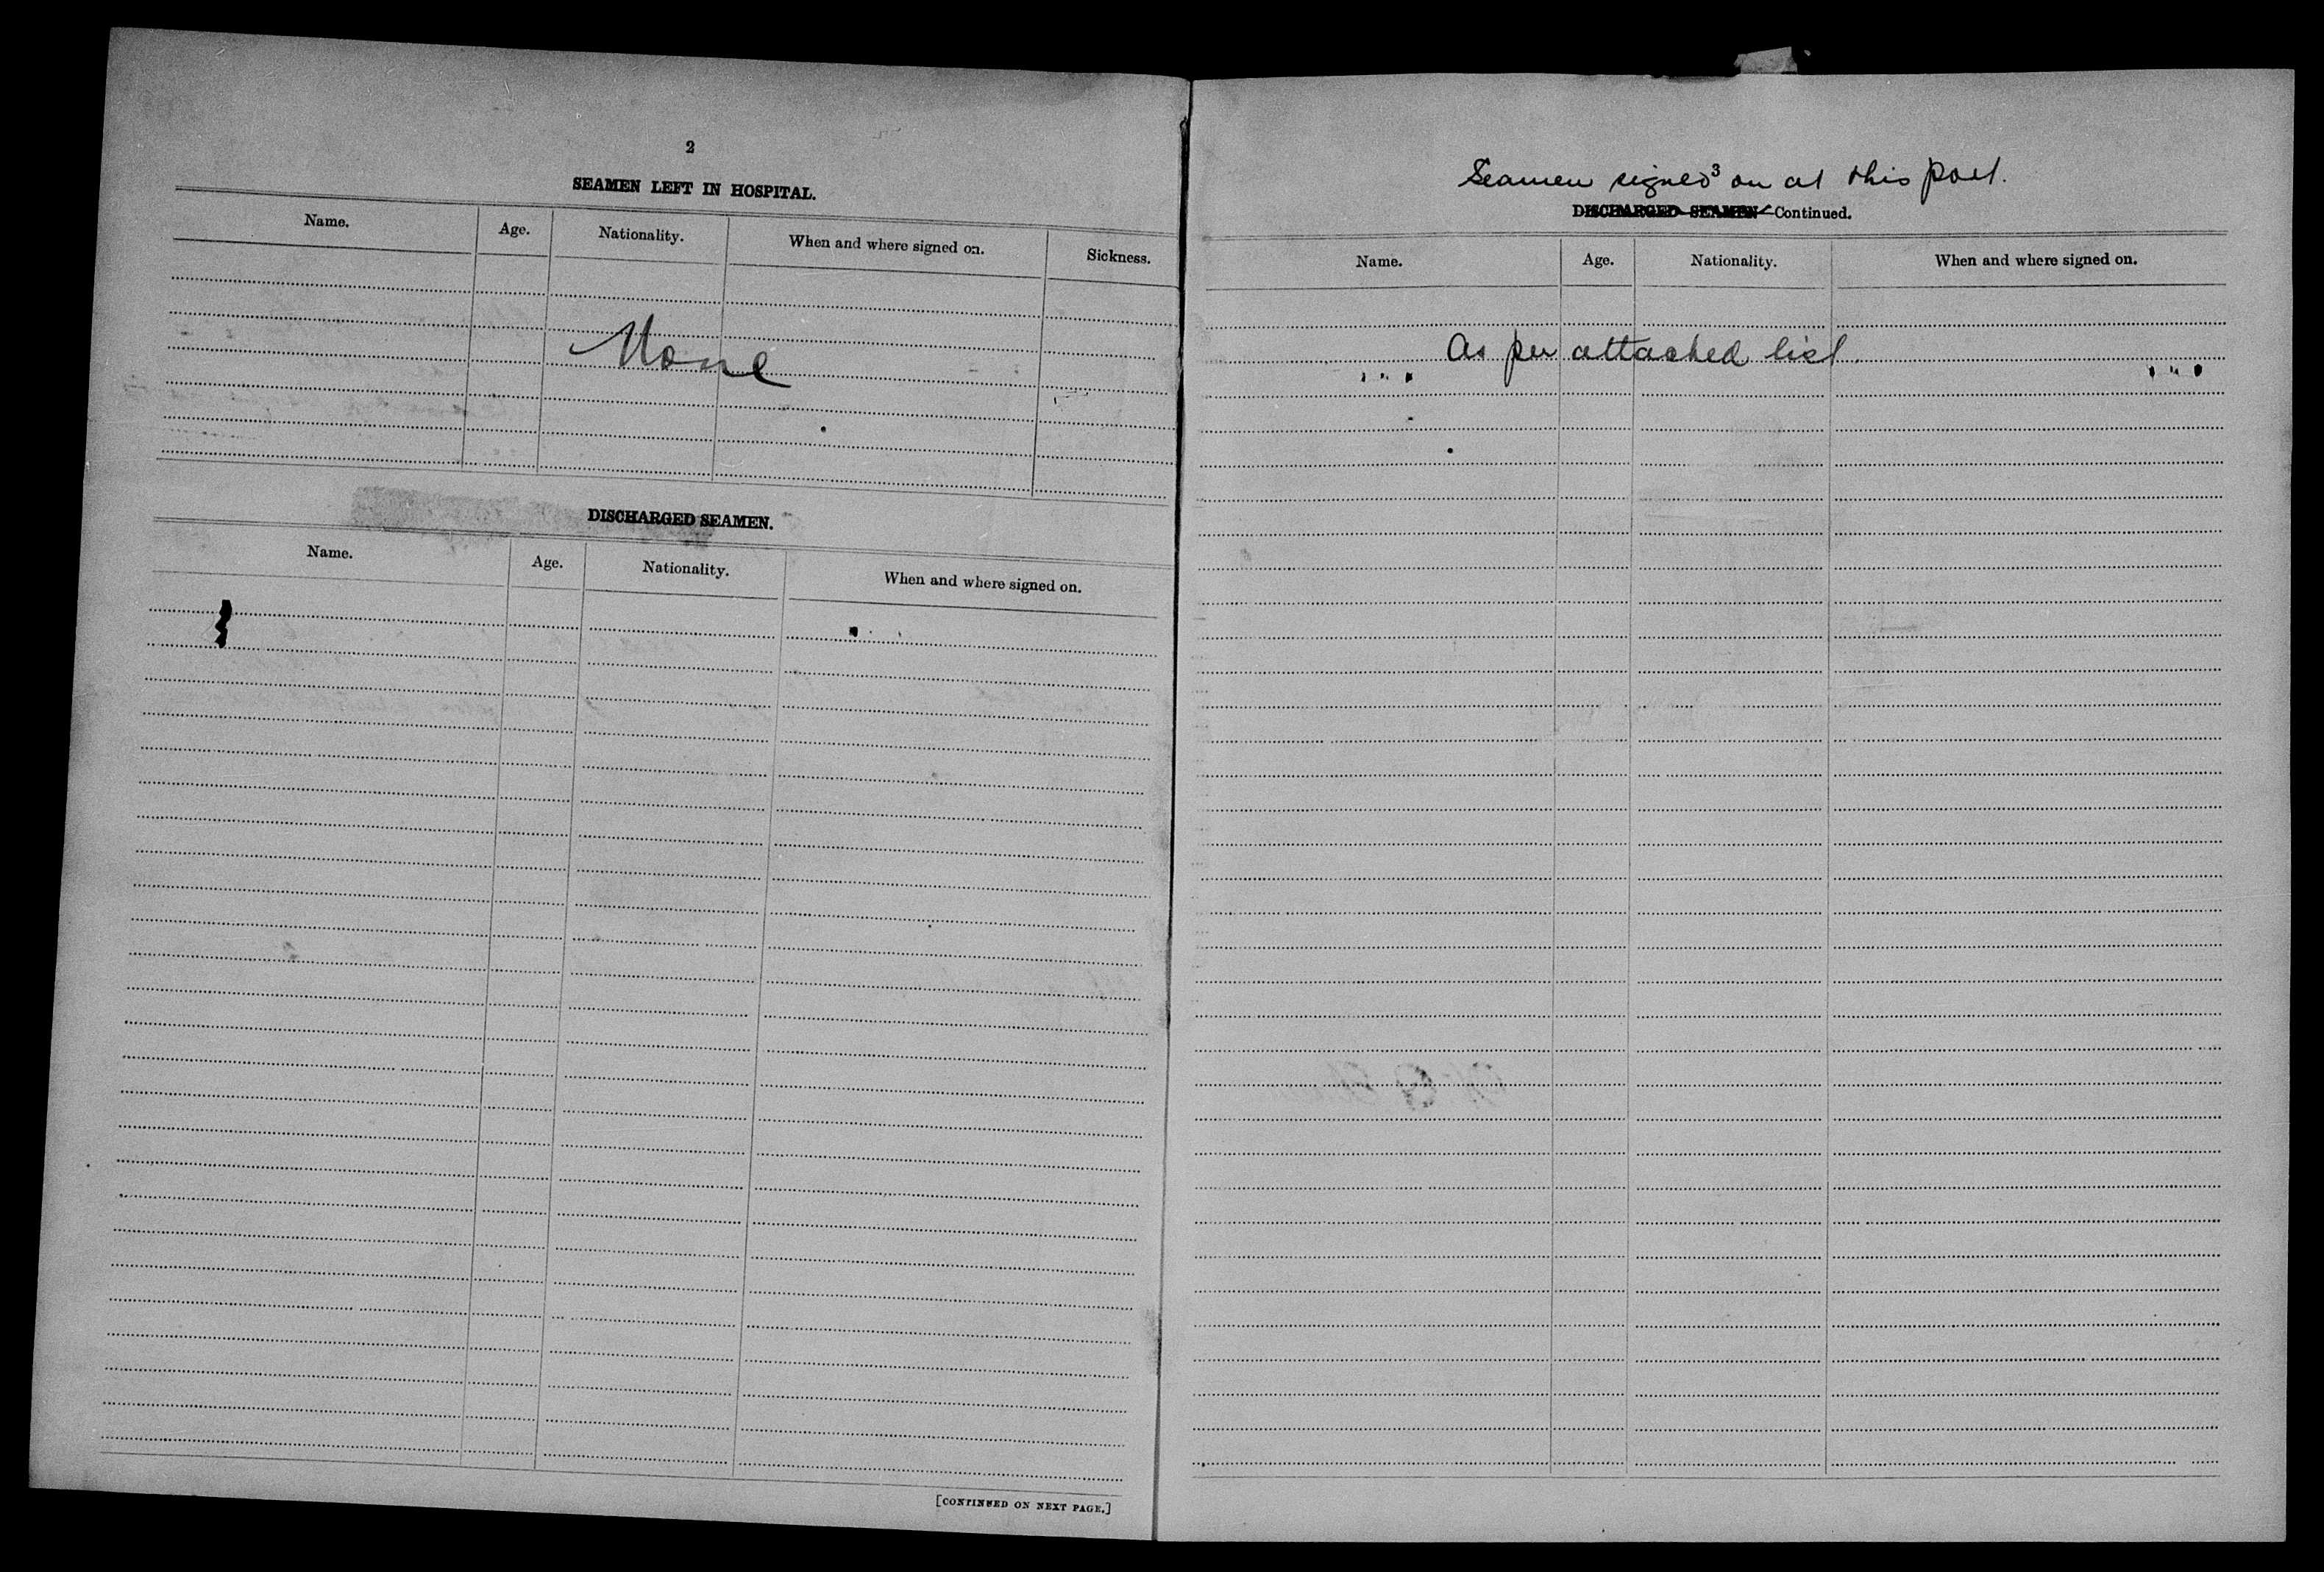 2
SEAMEN LEFT IN HOSPITAL.
Name. Age. Nationality. When and where signed on. Sickness.
None
DISCHARGED SEAMEN.
Name. Age. Nationality. When and where signed on.
[CONTINUED ON NEXT PAGE.]
3
Seamen signed on at this port.
DISCHARGED SEAMEN—Continued.
Name. Age. Nationality. When and where signed on.
As per attached list.